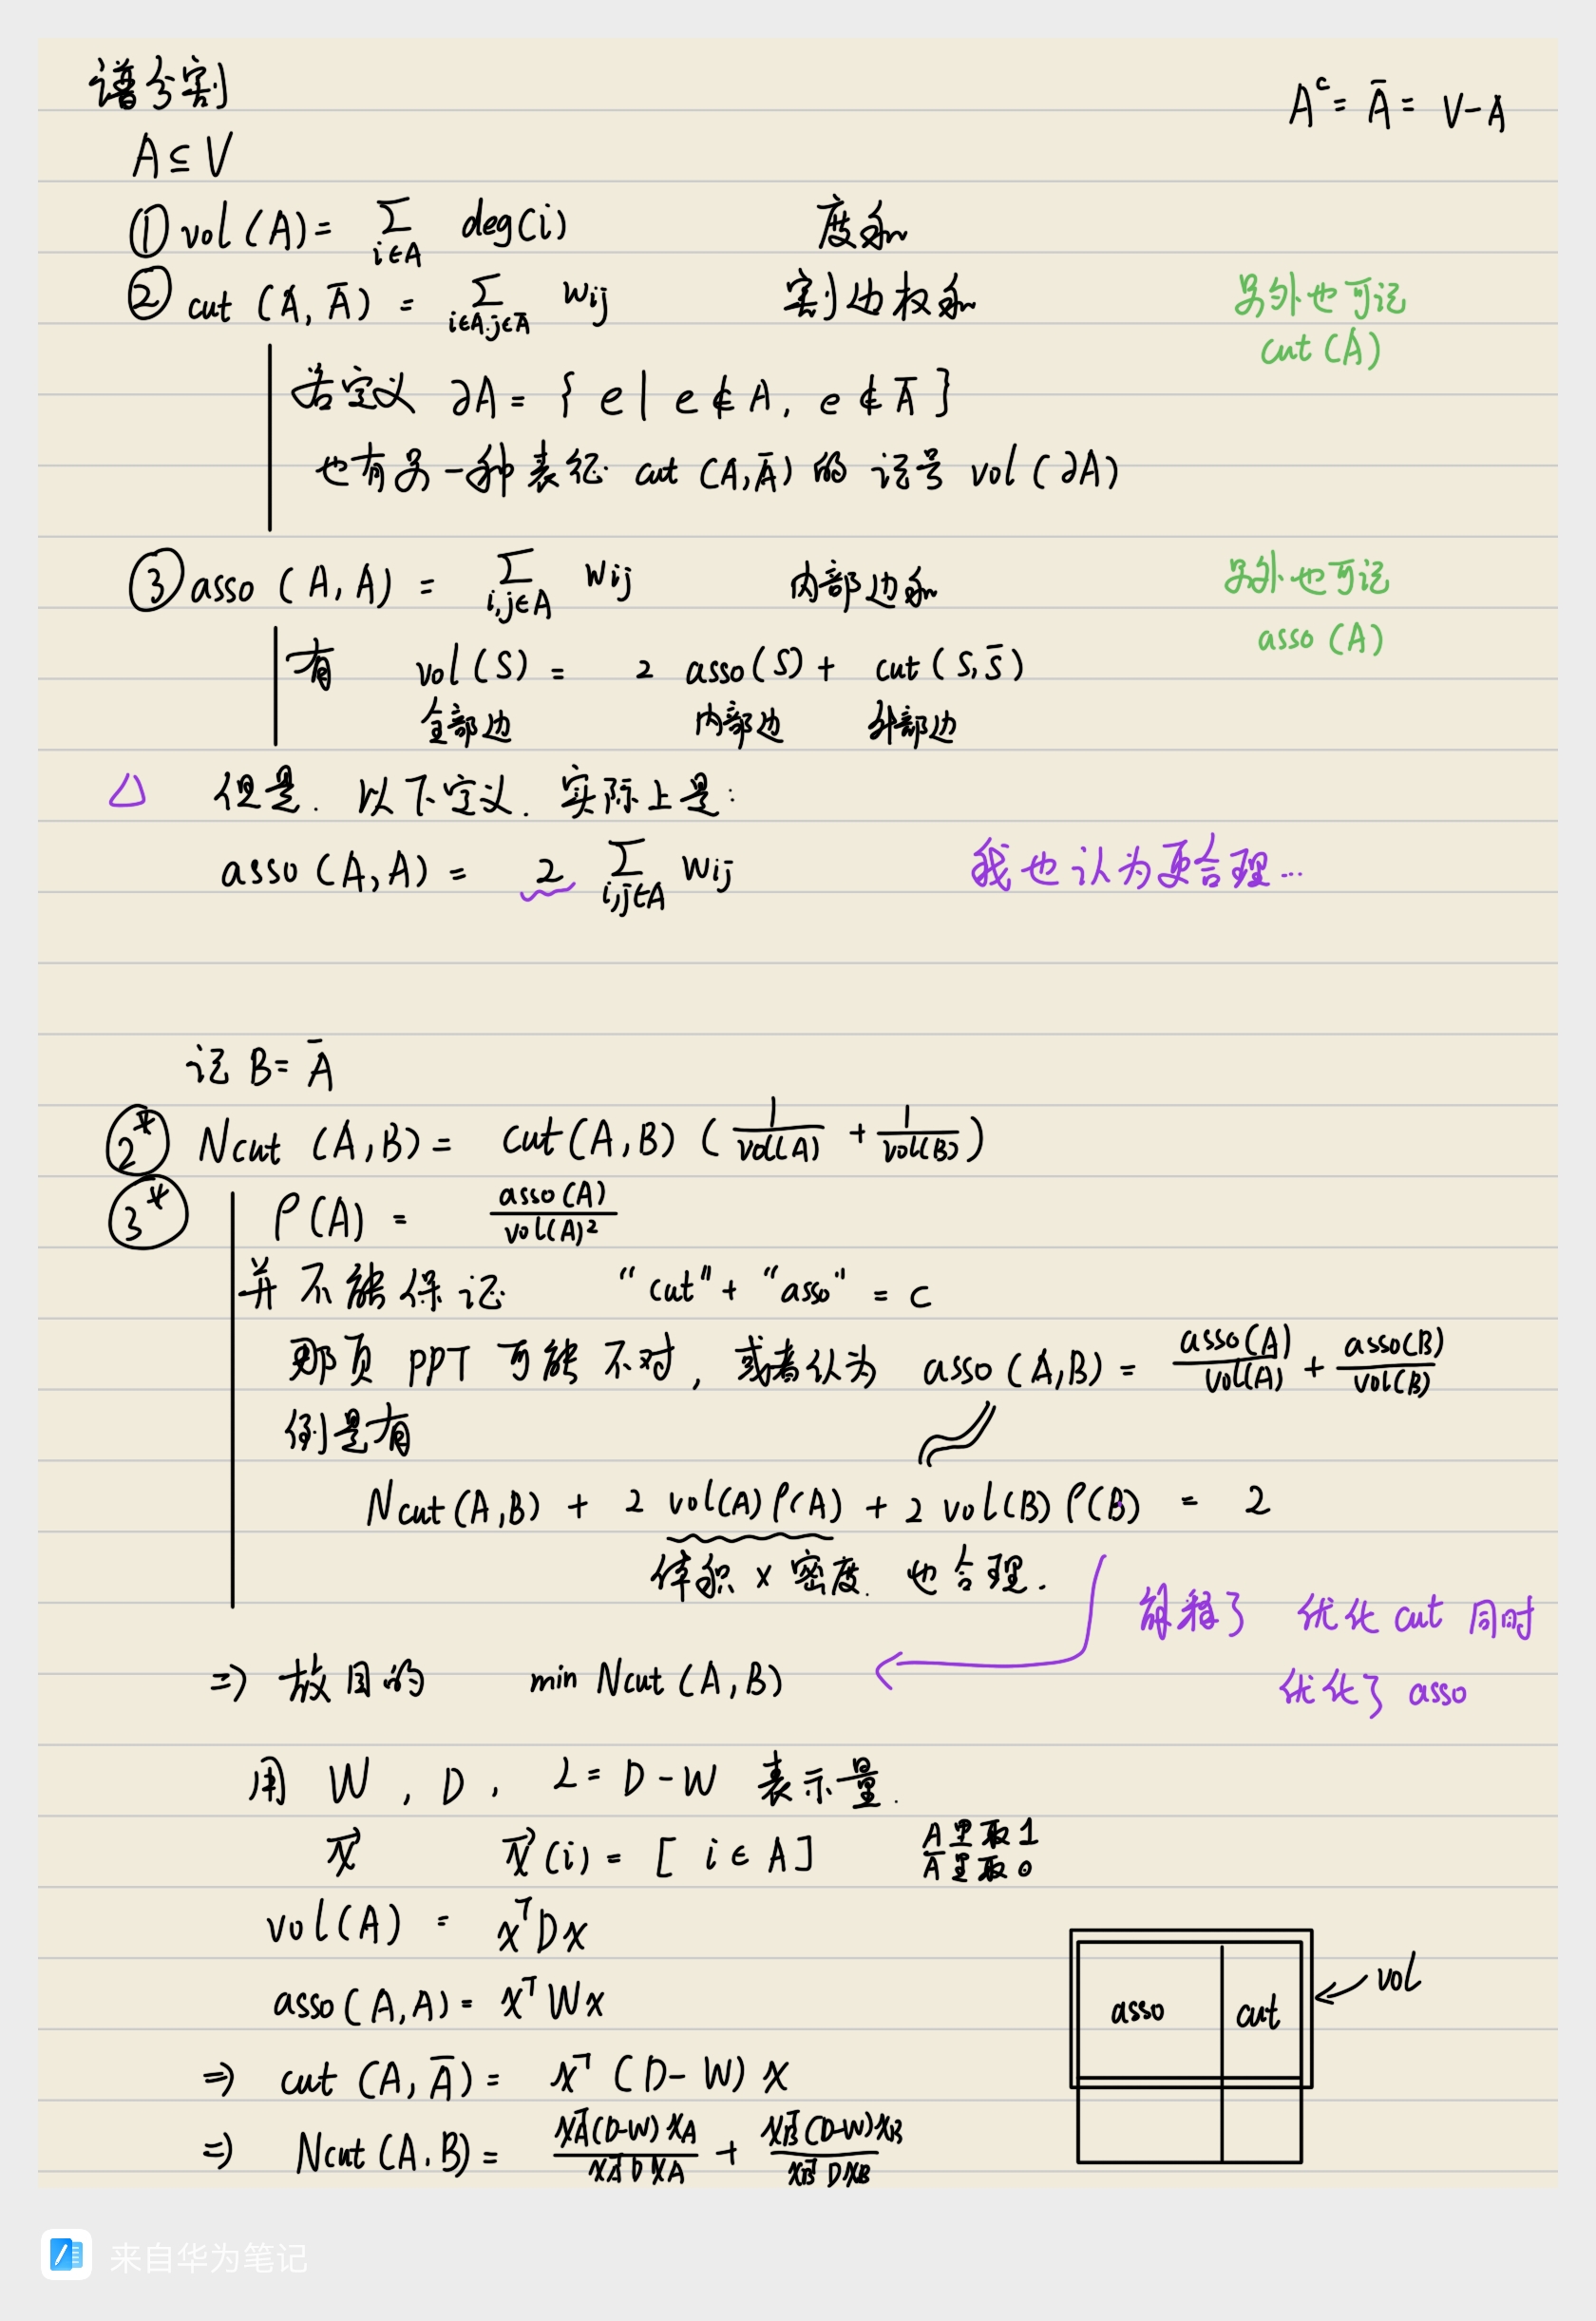 谱分割
A^c = Ā = V-A
A ⊆ V
① vol(A) = Σ_{i∈A} deg(i) 度和
② cut(A, Ā) = Σ_{i∈A, j∈Ā} wij 割边权和
另外也可记
cut(A)
若定义 ∂A = { e | e ⊄ A, e ⊄ Ā }
也有另一种表征 cut(A, Ā) 的记号 vol(∂A)
③ asso(A, A) = Σ_{i,j∈A} wij 内部边和
另外也可记
asso(A)
有 vol(S) = 2 asso(S) + cut(S, S̄)
全部边 内部边 外部边
△ 但是. 以下定义. 实际上是:
asso(A, A) = 2 Σ_{i,j∈A} wij 我也认为更合理...
记 B = Ā
②* Ncut(A, B) = cut(A, B) (1/vol(A) + 1/vol(B))
③* ρ(A) = asso(A)/vol(A)²
并不能保证 "cut" + "asso" = c
那页 PPT 可能不对, 或者认为 asso(A, B) = asso(A)/vol(A) + asso(B)/vol(B)
倒是有
Ncut(A, B) + 2 vol(A)ρ(A) + 2 vol(B)ρ(B) = 2
体积 × 密度. 也合理.
解释了 优化 cut 同时
优化了 asso
⇒ 故目的 min Ncut(A, B)
用 W, D, L = D-W 表示量.
x⃗ x⃗(i) = [i ∈ A] A里取1
Ā里取0
vol(A) = x^T D x
asso(A, A) = x^T W x
⇒ cut(A, Ā) = x^T (D-W) x
⇒ Ncut(A, B) = x_A^T(D-W)x_A / x_A^T D x_A + x_B^T(D-W)x_B / x_B^T D x_B
asso cut ← vol
来自华为笔记